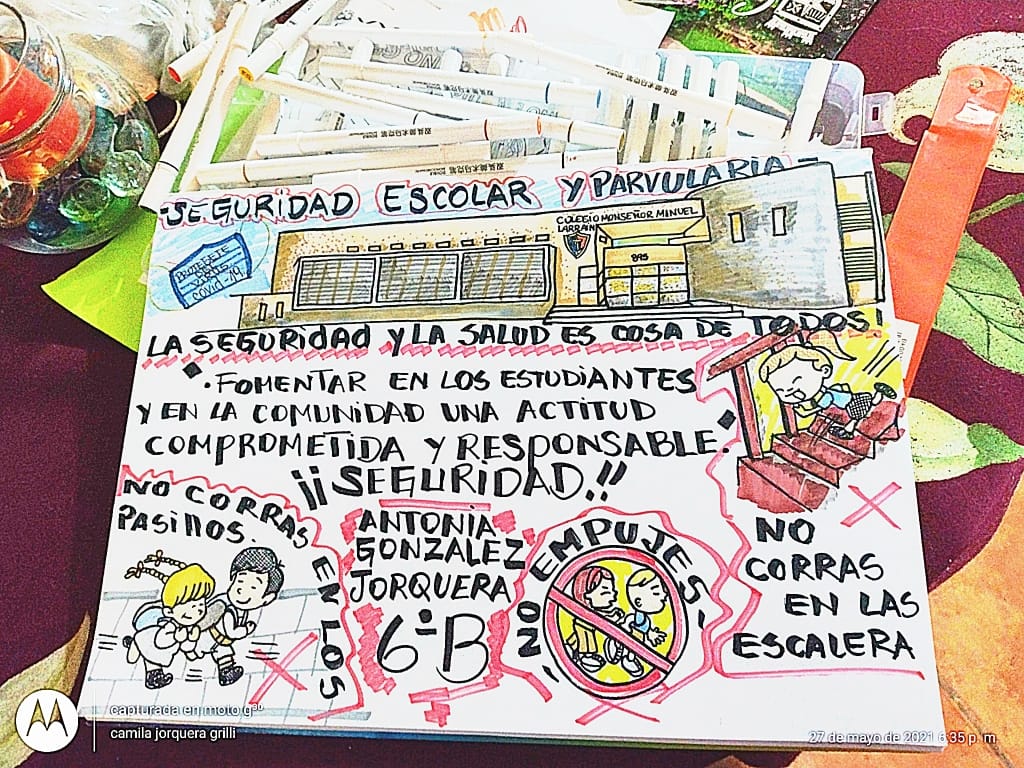 SEGURIDAD ESCOLAR Y PARVULARIA
COLEGIO MONSEÑOR MINUEL
LARRAIN
895
PROTEGETE
COVID-19
LA SEGURIDAD Y LA SALUD ES COSA DE TODOS!
• FOMENTAR EN LOS ESTUDIANTES
Y EN LA COMUNIDAD UNA ACTITUD
COMPROMETIDA Y RESPONSABLE.
¡¡SEGURIDAD!!
NO CORRAS EN LOS
PASILLOS.
ANTONIA
GONZALEZ
JORQUERA
6º B
NO EMPUJES
NO
CORRAS
EN LAS
ESCALERA
capturada en moto g³⁰
camila jorquera grilli
27 de mayo de 2021 6:35 p. m.